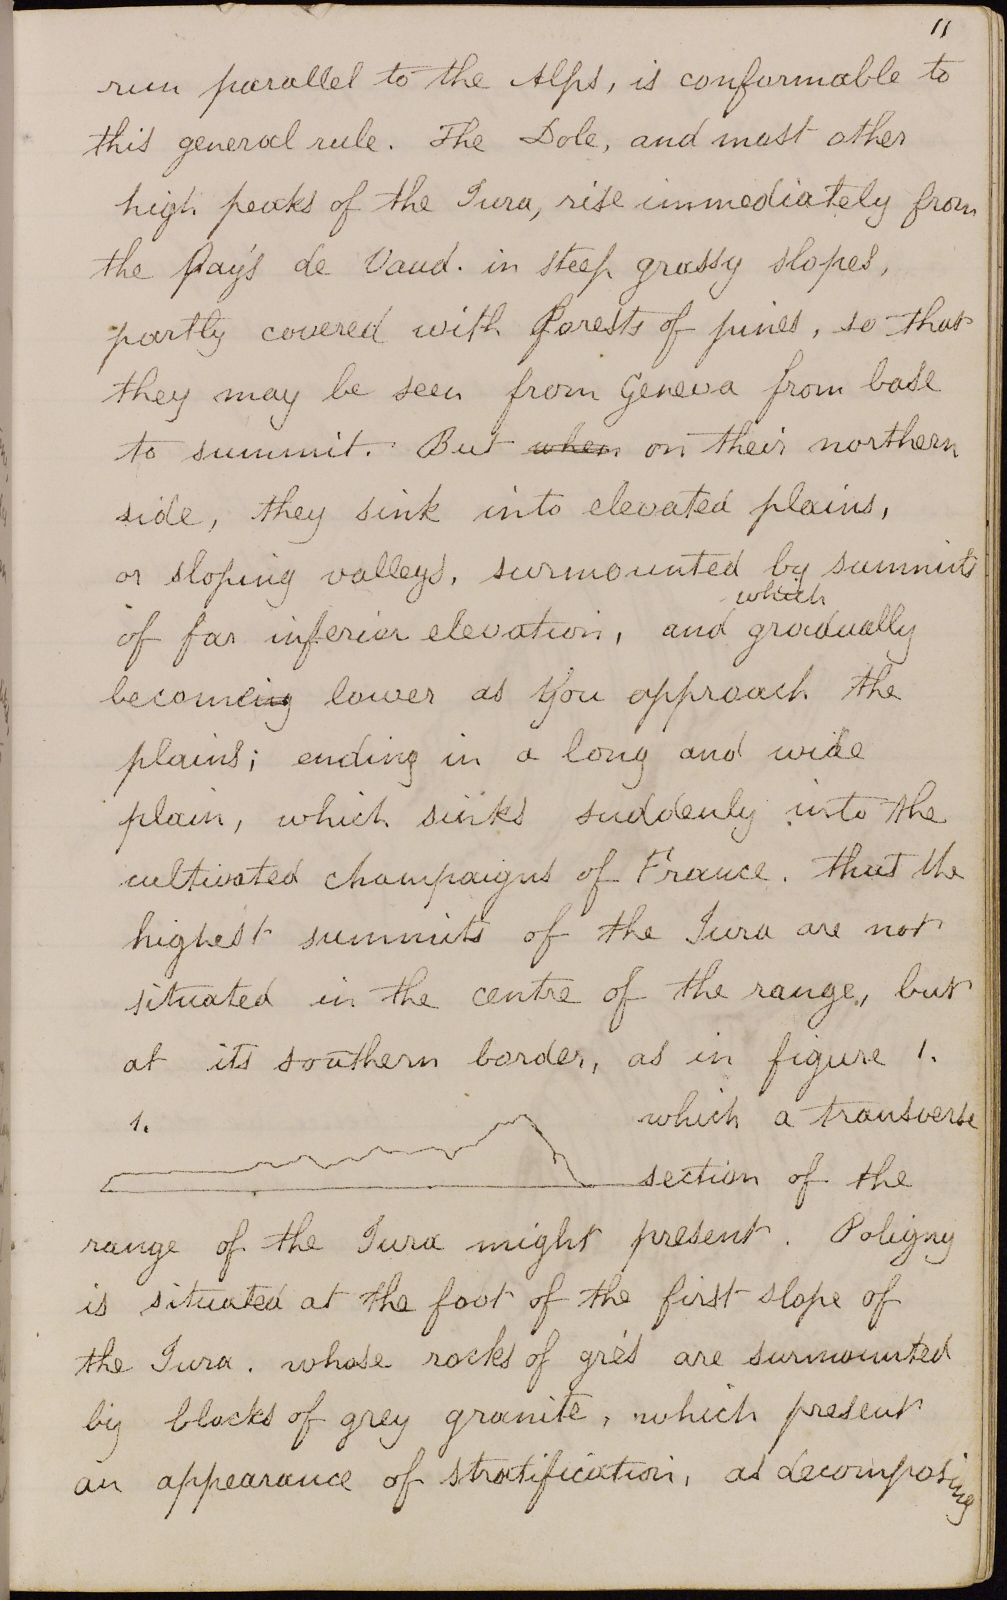 11
run parallel to the Alps, is conformable to
this general rule. The Dole, and most other
high peaks of the Jura, rise immediately from
the Pays de Vaud. in steep grassy slopes,
partly covered with forests of pines, so that
they may be seen from Geneva from base
to summit. But when on their northern
side, they sink into elevated plains,
or sloping valleys, surmounted by summits
which
of far inferior elevation, and gradually
becomeing lower as you approach the
plains; ending in a long and wide
plain, which sinks suddenly into the
cultivated champaigns of France. that the
highest summits of the Jura are not
situated in the centre of the range, but
at its southern border, as in figure 1.
1. which a transverse
section of the
range of the Jura might present. Poligny
is situated at the foot of the first slope of
the Jura. whose rocks of grés are surmounted
by blocks of grey granite, which present
an appearance of stratification, as decomposing